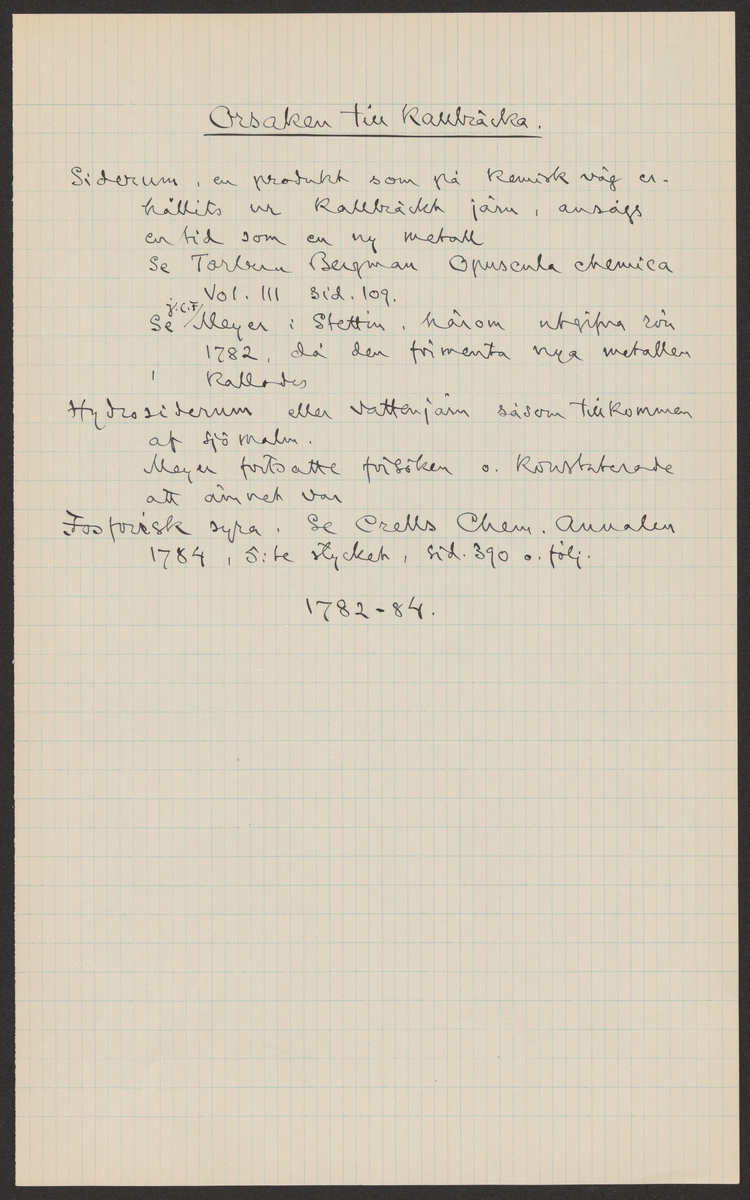 Orsaken till Kallbräcka.
Siderum, en produkt som på Kemisk väg er-
hållits ur Kallbräckt järn, ansågs
en tid som en ny metall
Se Torbern Bergman Opuscula chemica
Vol. III sid. 109.
J.C.F.
Se Meyer i Stettin, härom utgifna rön
1782, då den förmenta nya metallen
Kallades
Hydrosiderum eller vattenjärn såsom tillkommen
af sjömalm.
Meyer fortsatte försöken o. Konstaterade
att ämnet var
Fosforisk syra. Se Crells Chem. Annalen
1784, 5:te stycket, sid. 390 o. följ.
1782-84.